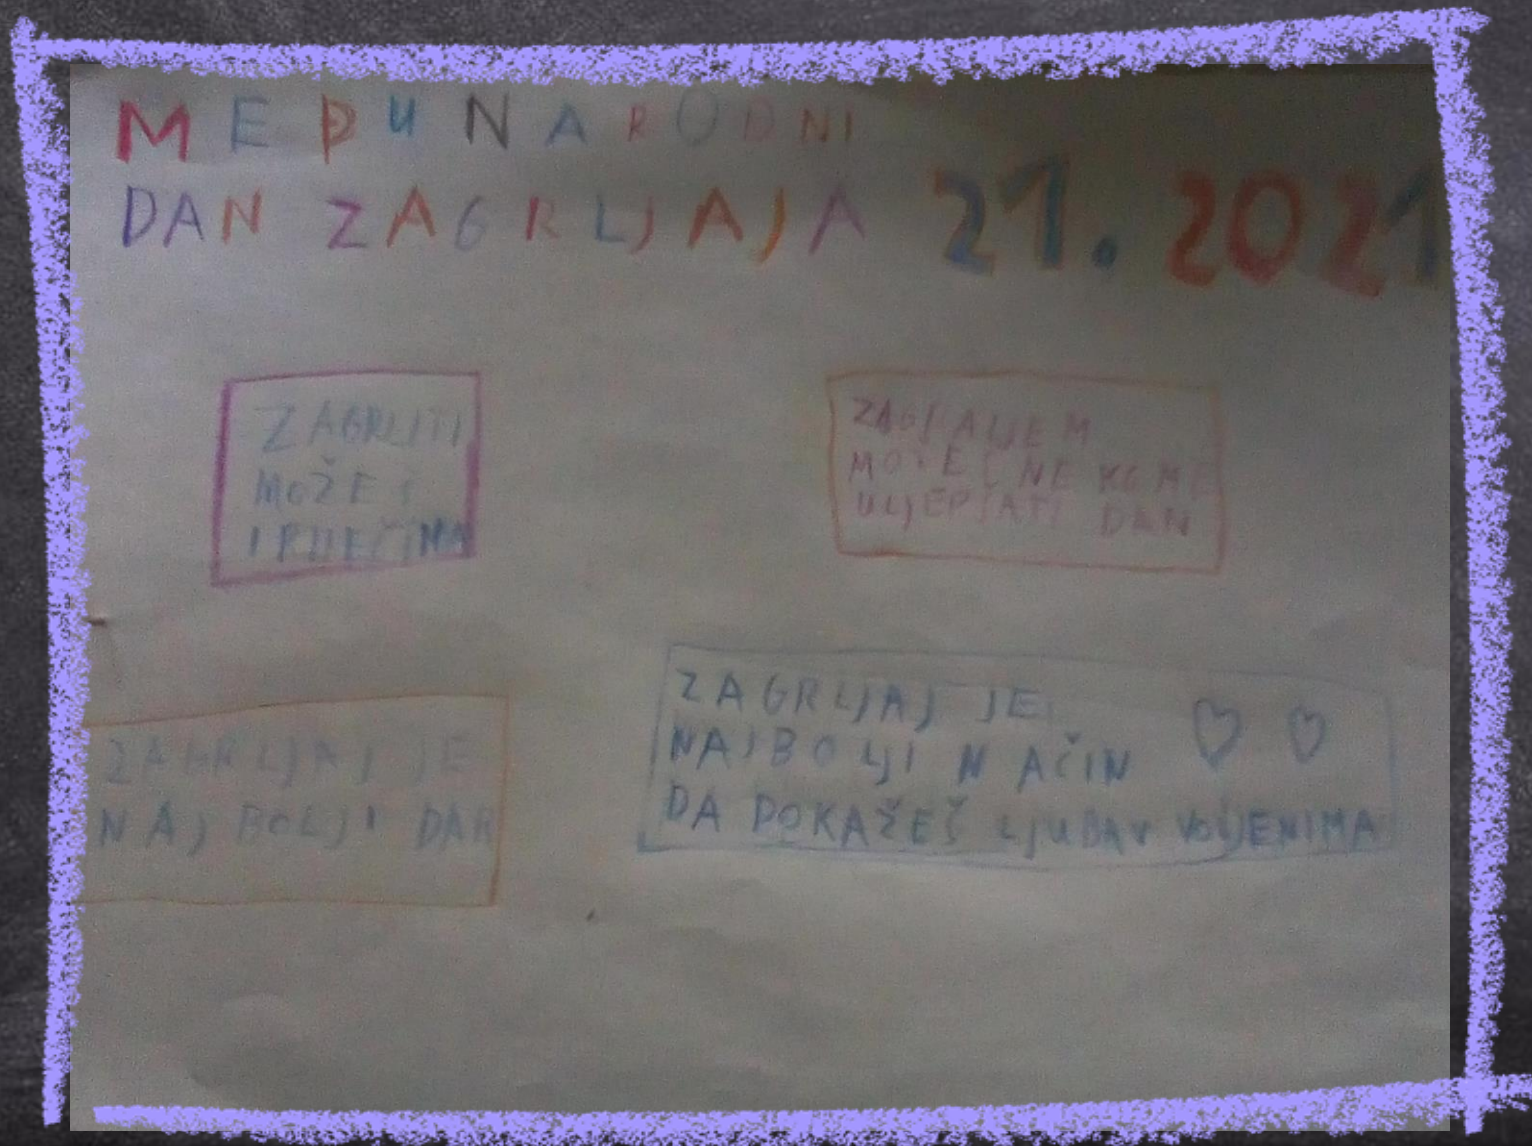 MEĐUNARODNI
DAN ZAGRLJAJA 21. 2021
ZAGRLITI
MOŽEŠ
I RIJEČIMA
ZAGRLJAJEM
MOŽEŠ NEKOME
ULJEPŠATI DAN
ZAGRLJAJ JE
NAJBOLJI DAR
ZAGRLJAJ JE
NAJBOLJI NAČIN
DA POKAŽEŠ LJUBAV VOLJENIMA